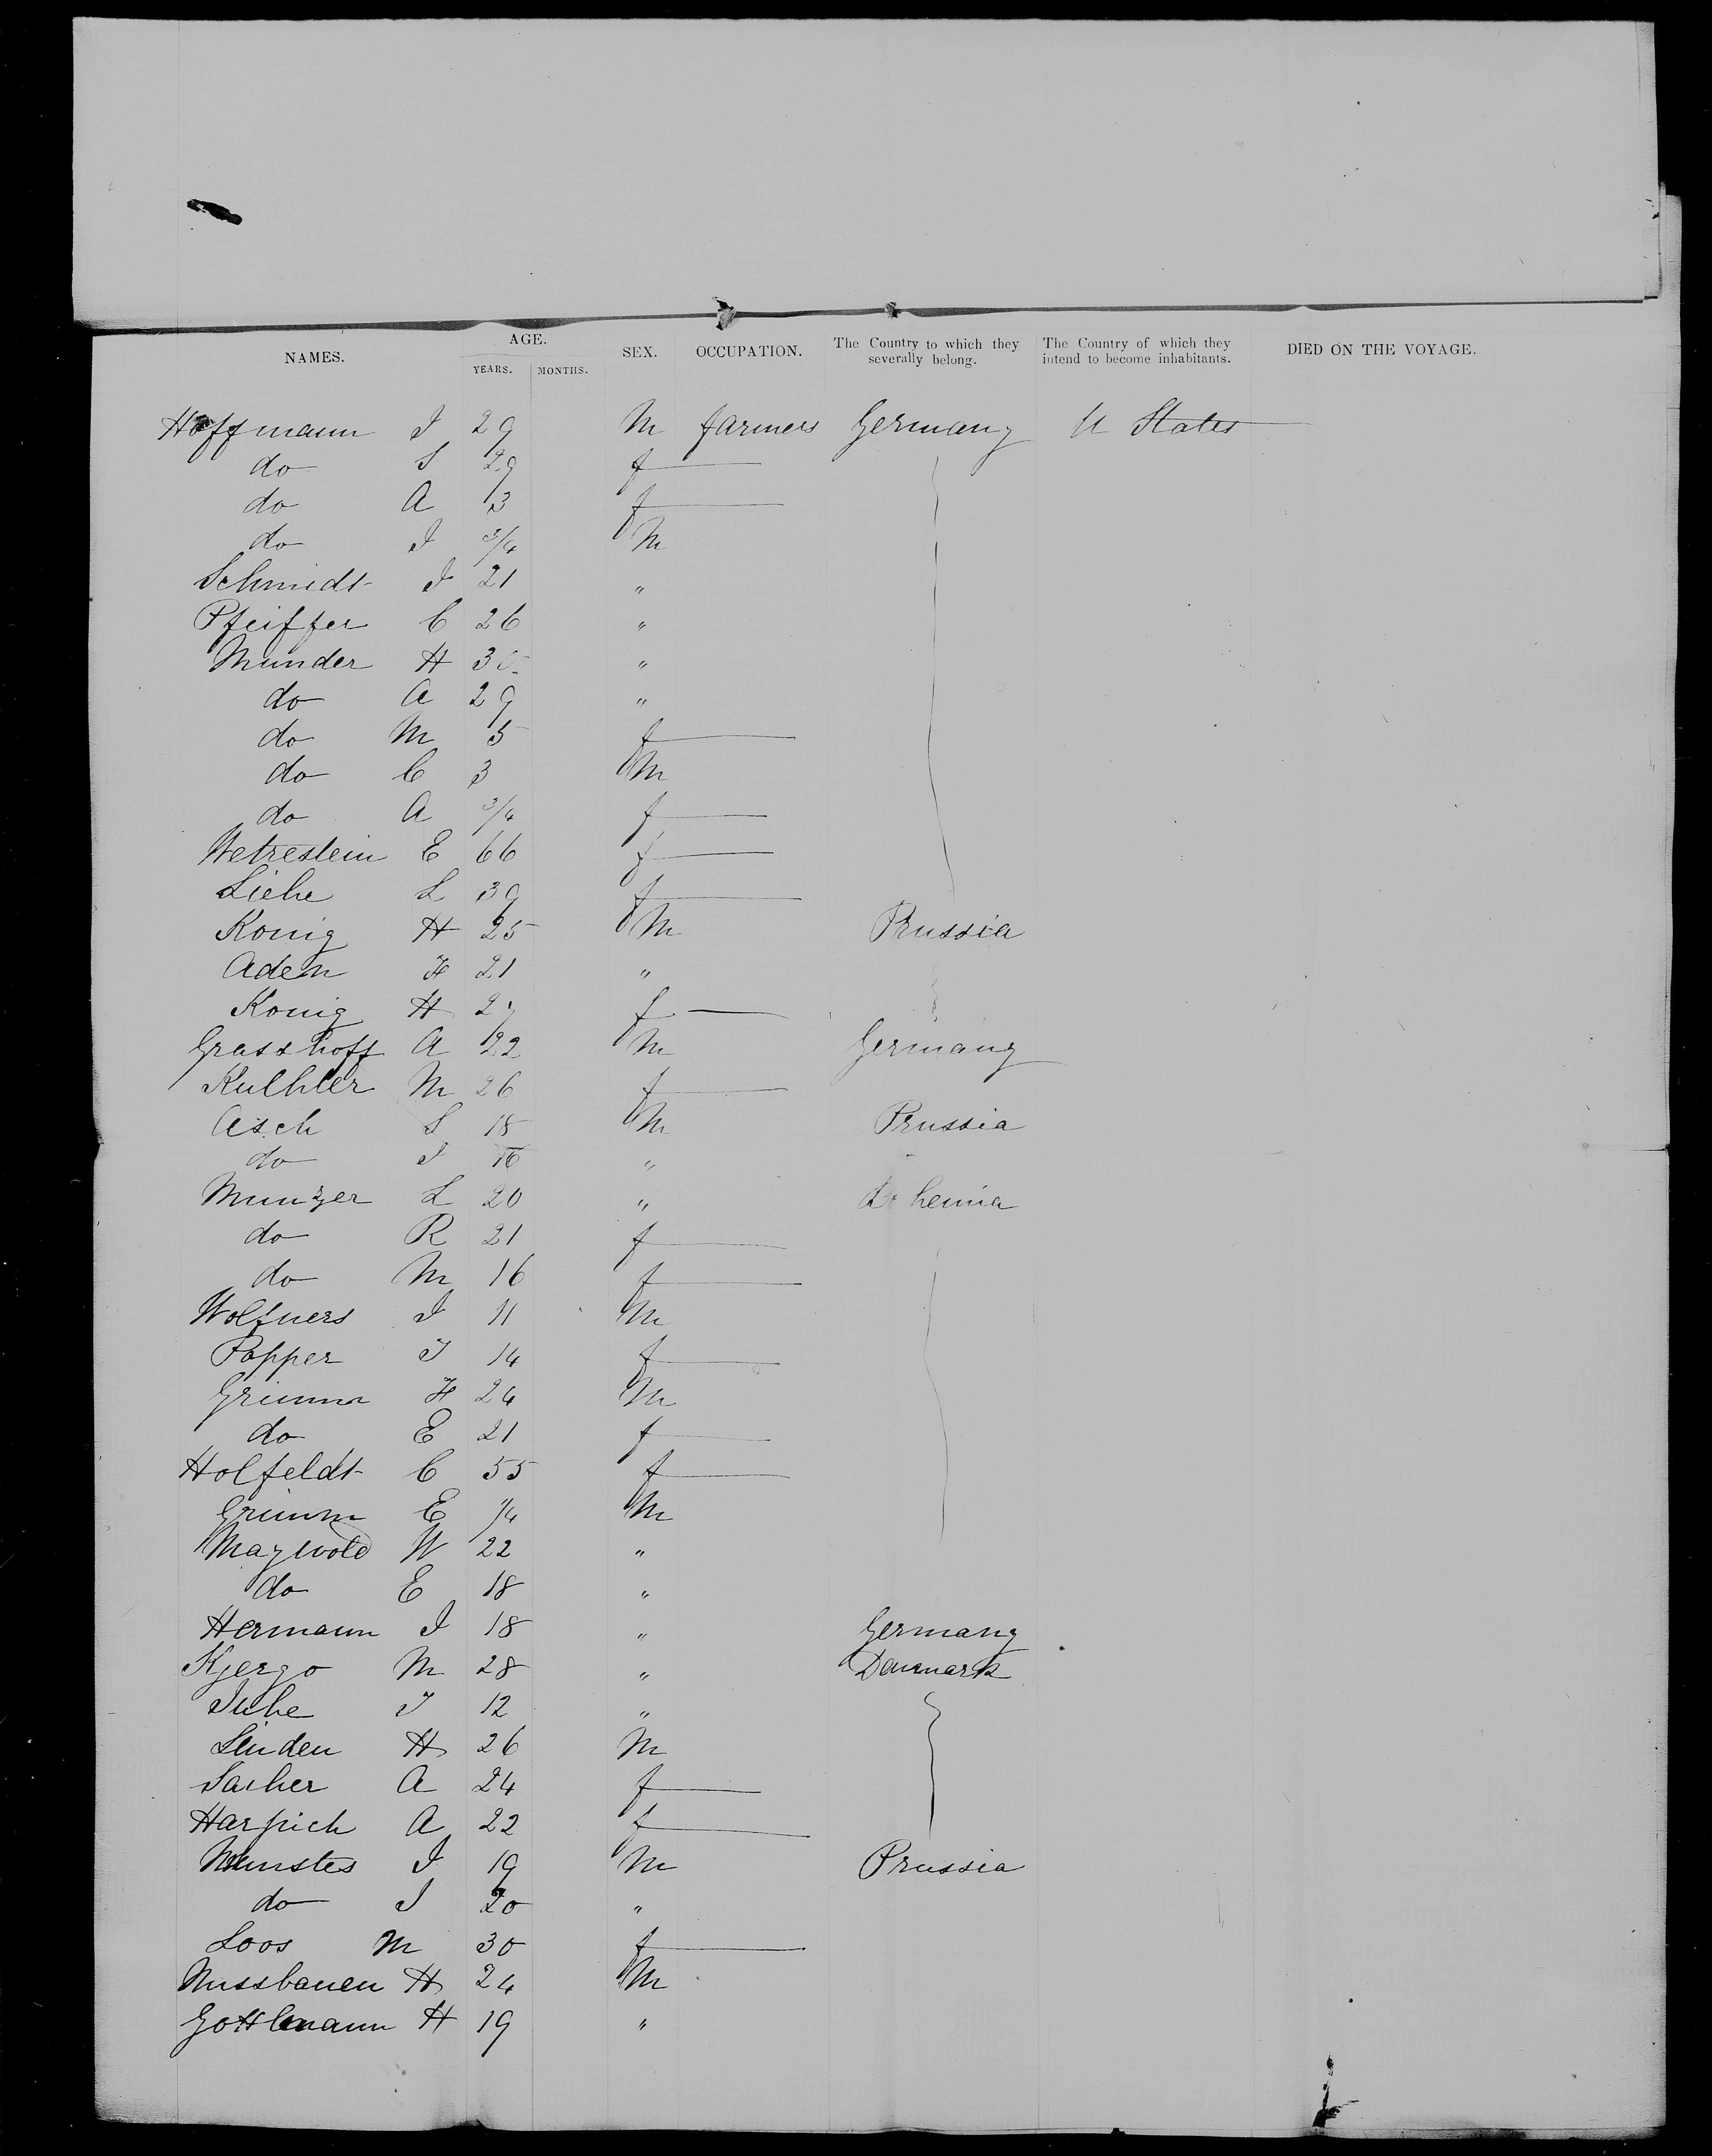 NAMES. AGE. YEARS. MONTHS. SEX. OCCUPATION. The Country to which they severally belong. The Country of which they intend to become inhabitants. DIED ON THE VOYAGE.
Hoffmann J 29 M farmers Germany U States
do S 29 f
do A 3 f
do J 3/4 M
Schmidt J 21 "
Pfeiffer C 26 "
Munder H 30 "
do A 29 "
do M 5 f
do C 3 M
do A 3/4 f
Wetrestein E 66 f
Liehe L 39 f
Konig H 25 M Prussia
Adem H 21 "
Konig H f
Grasshoff A 22 M Germany
Kulhler M 26 f
Asch S 18 M Prussia
do J 16 "
Munzer L 20 " Bohemia
do R 21 f
do M 16 f
Wolfners J 11 M
Popper J 14 f
Grimm H 24 M
do E 21 f
Holfeldt C 55 f
Grimm E M
Maywold W 22 "
do E 18 "
Hermann J 18 " Germany
Kjergo M 28 " Denmark
Juhe J 12 "
Linden H 26 M
Sacher A 24 f
Harpich A 22 f
Munstes J 19 M Prussia
do J 20 "
Loos M 30 f
Nussbauen H 24 M
Gottlmann H 19 "